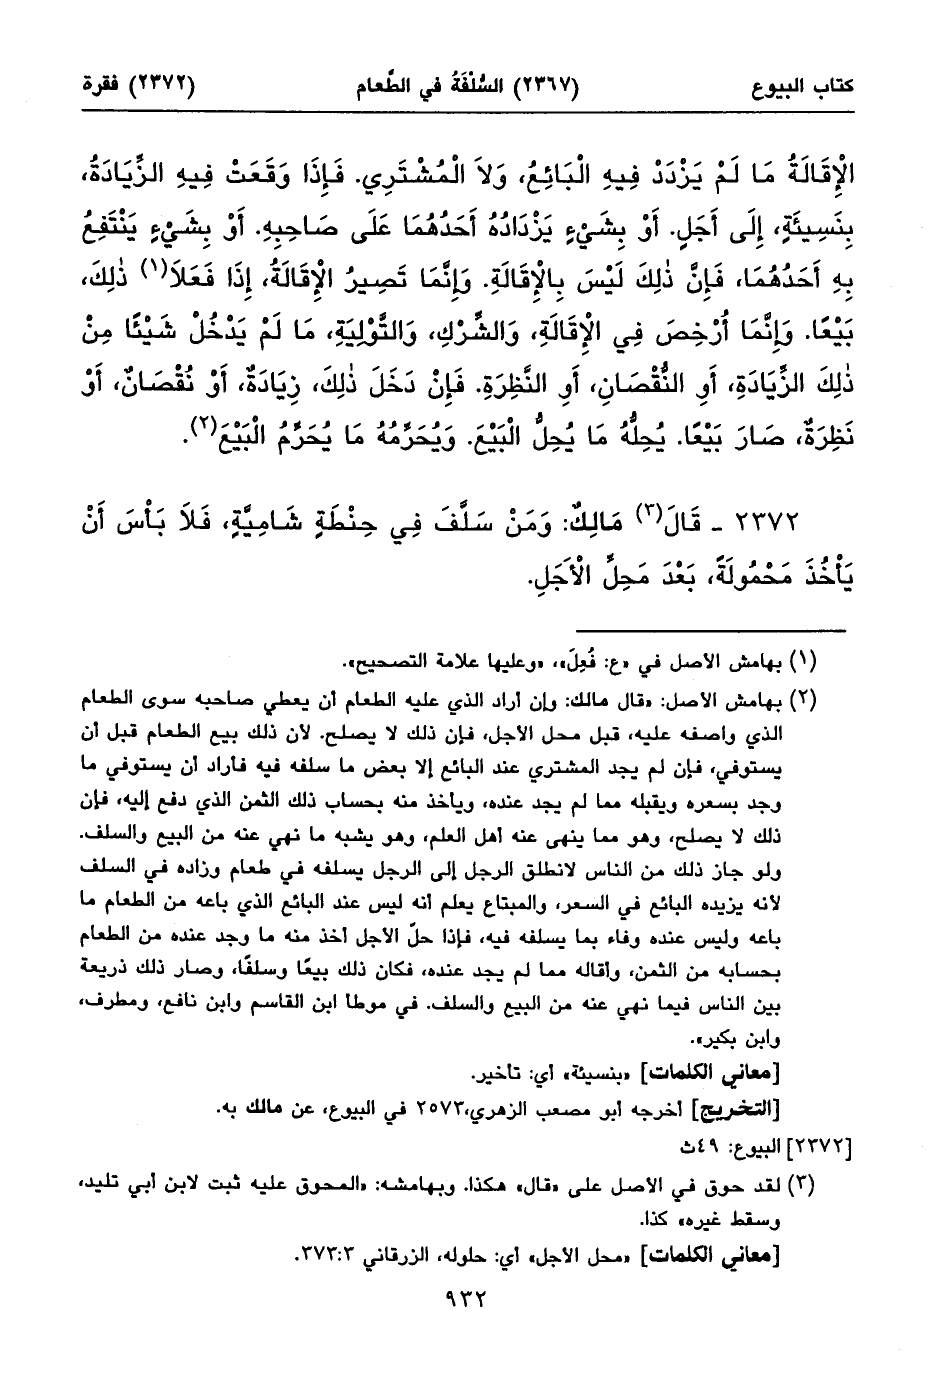 كتاب البيوع (٢٣٦٧) السُّلْفَةُ في الطَّعام (٢٣٧٢) فقرة
الْإِقَالَةُ مَا لَمْ يَزْدَدْ فِيهِ الْبَائِعُ، وَلاَ الْمُشْتَرِي. فَإِذَا وَقَعَتْ فِيهِ الزِّيَادَةُ،
بِنَسِيئَةٍ، إِلَى أَجَلٍ. أَوْ بِشَيْءٍ يَزْدَادُهُ أَحَدُهُمَا عَلَى صَاحِبِهِ. أَوْ بِشَيْءٍ يَنْتَفِعُ
بِهِ أَحَدُهُمَا، فَإِنَّ ذٰلِكَ لَيْسَ بِالْإِقَالَةِ. وَإِنَّمَا تَصِيرُ الْإِقَالَةُ، إِذَا فَعَلاَ(١) ذٰلِكَ،
بَيْعًا. وَإِنَّمَا أُرْخِصَ فِي الْإِقَالَةِ، وَالشِّرْكِ، وَالتَّوْلِيَةِ، مَا لَمْ يَدْخُلْ شَيْئًا مِنْ
ذٰلِكَ الزِّيَادَةِ، أَوِ النُّقْصَانِ، أَوِ النَّظِرَةِ. فَإِنْ دَخَلَ ذٰلِكَ، زِيَادَةٌ، أَوْ نُقْصَانٌ، أَوْ
نَظِرَةٌ، صَارَ بَيْعًا. يُحِلُّهُ مَا يُحِلُّ الْبَيْعَ. وَيُحَرِّمُهُ مَا يُحَرِّمُ الْبَيْعَ(٢).
٢٣٧٢ - قَالَ(٣) مَالِكٌ: وَمَنْ سَلَّفَ فِي حِنْطَةٍ شَامِيَّةٍ، فَلاَ بَأْسَ أَنْ
يَأْخُذَ مَحْمُولَةً، بَعْدَ مَحِلِّ الْأَجَلِ.
(١) بهامش الأصل في «ع: فُعِلَ»، «وعليها علامة التصحيح».
(٢) بهامش الأصل: «قال مالك: وإن أراد الذي عليه الطعام أن يعطي صاحبه سوى الطعام
الذي واصفه عليه، قبل محل الأجل، فإن ذلك لا يصلح. لأن ذلك بيع الطعام قبل أن
يستوفي، فإن لم يجد المشتري عند البائع إلا بعض ما سلفه فيه فأراد أن يستوفي ما
وجد بسعره ويقبله مما لم يجد عنده، ويأخذ منه بحساب ذلك الثمن الذي دفع إليه، فإن
ذلك لا يصلح، وهو مما ينهى عنه أهل العلم، وهو يشبه ما نهي عنه من البيع والسلف.
ولو جاز ذلك من الناس لانطلق الرجل إلى الرجل يسلفه في طعام وزاده في السلف
لأنه يزيده البائع في السعر، والمبتاع يعلم أنه ليس عند البائع الذي باعه من الطعام ما
باعه وليس عنده وفاء بما يسلفه فيه، فإذا حلّ الأجل أخذ منه ما وجد عنده من الطعام
بحسابه من الثمن، وأقاله مما لم يجد عنده، فكان ذلك بيعًا وسلفًا، وصار ذلك ذريعة
بين الناس فيما نهي عنه من البيع والسلف. في موطا ابن القاسم وابن نافع، ومطرف،
وابن بكير».
[معاني الكلمات] «بنسيئة» أي: تأخير.
[التخريج] أخرجه أبو مصعب الزهري،٢٥٧٣ في البيوع، عن مالك به.
[٢٣٧٢] البيوع: ٤٩ث
(٣) لقد حوق في الأصل على «قال» هكذا. وبهامشه: «المحوق عليه ثبت لابن أبي تليد،
وسقط غيره» كذا.
[معاني الكلمات] «محل الأجل» أي: حلوله، الزرقاني ٣٧٣:٣.
٩٣٢